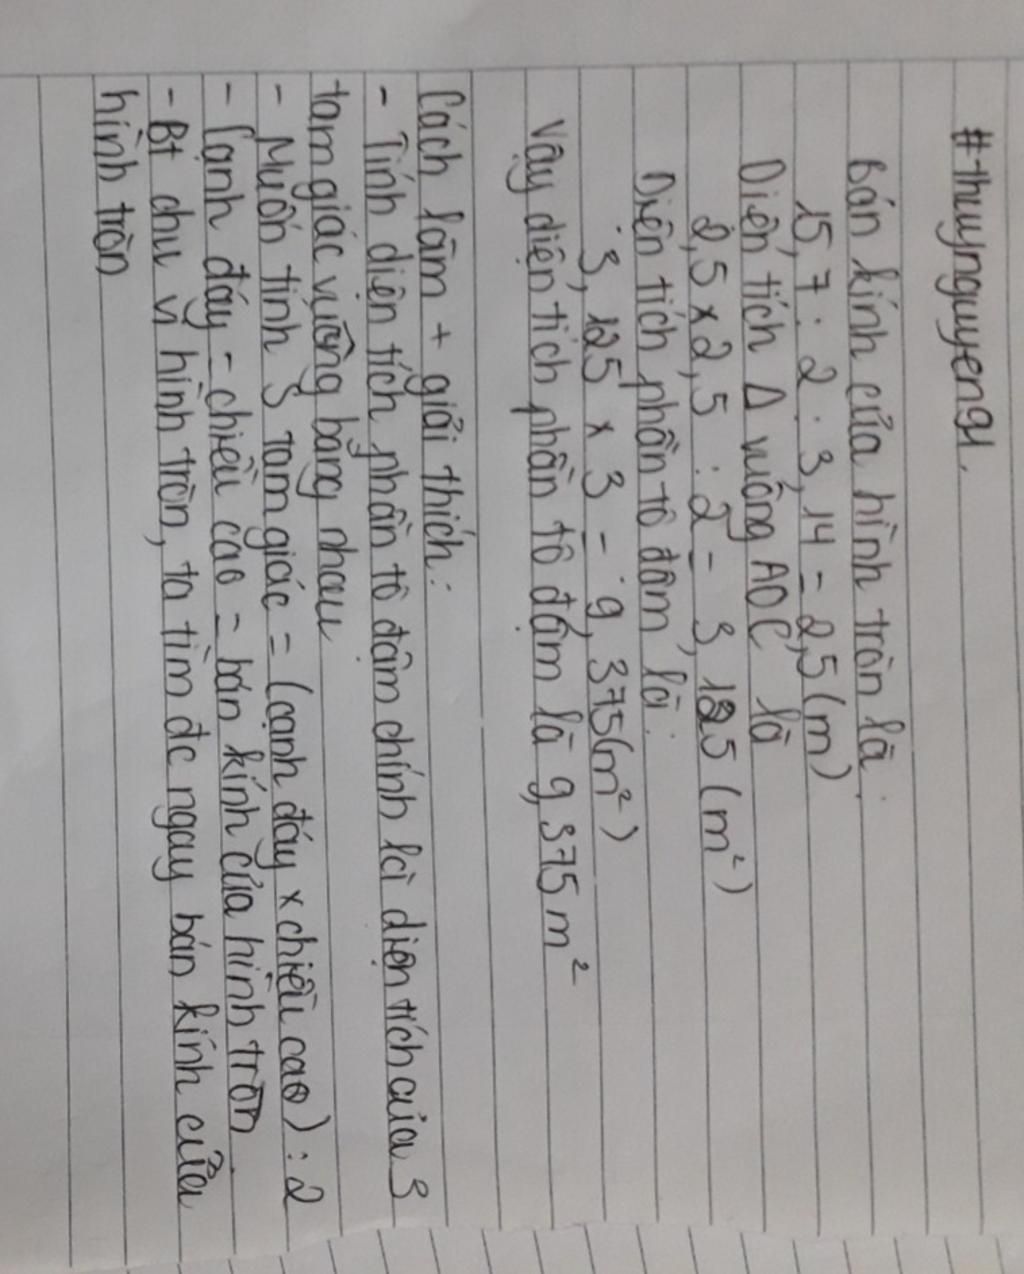 #thuynguyen91.
Bán kính của hình tròn là:
15,7 : 2 : 3,14 = 2,5 (m)
Diện tích Δ vuông AOC là
2,5 x 2,5 : 2 = 3,125 (m²)
Diện tích phần tô đậm là:
3,125 x 3 = 9,375 (m²)
Vậy diện tích phần tô đậm là 9,375 m²
Cách làm + giải thích:
- Tính diện tích phần tô đậm chính là diện tích của 3
tam giác vuông bằng nhau
- Muốn tính S tam giác = (cạnh đáy x chiều cao) : 2
- Cạnh đáy = chiều cao = bán kính của hình tròn
- Bt chu vi hình tròn, ta tìm đc ngay bán kính của
hình tròn